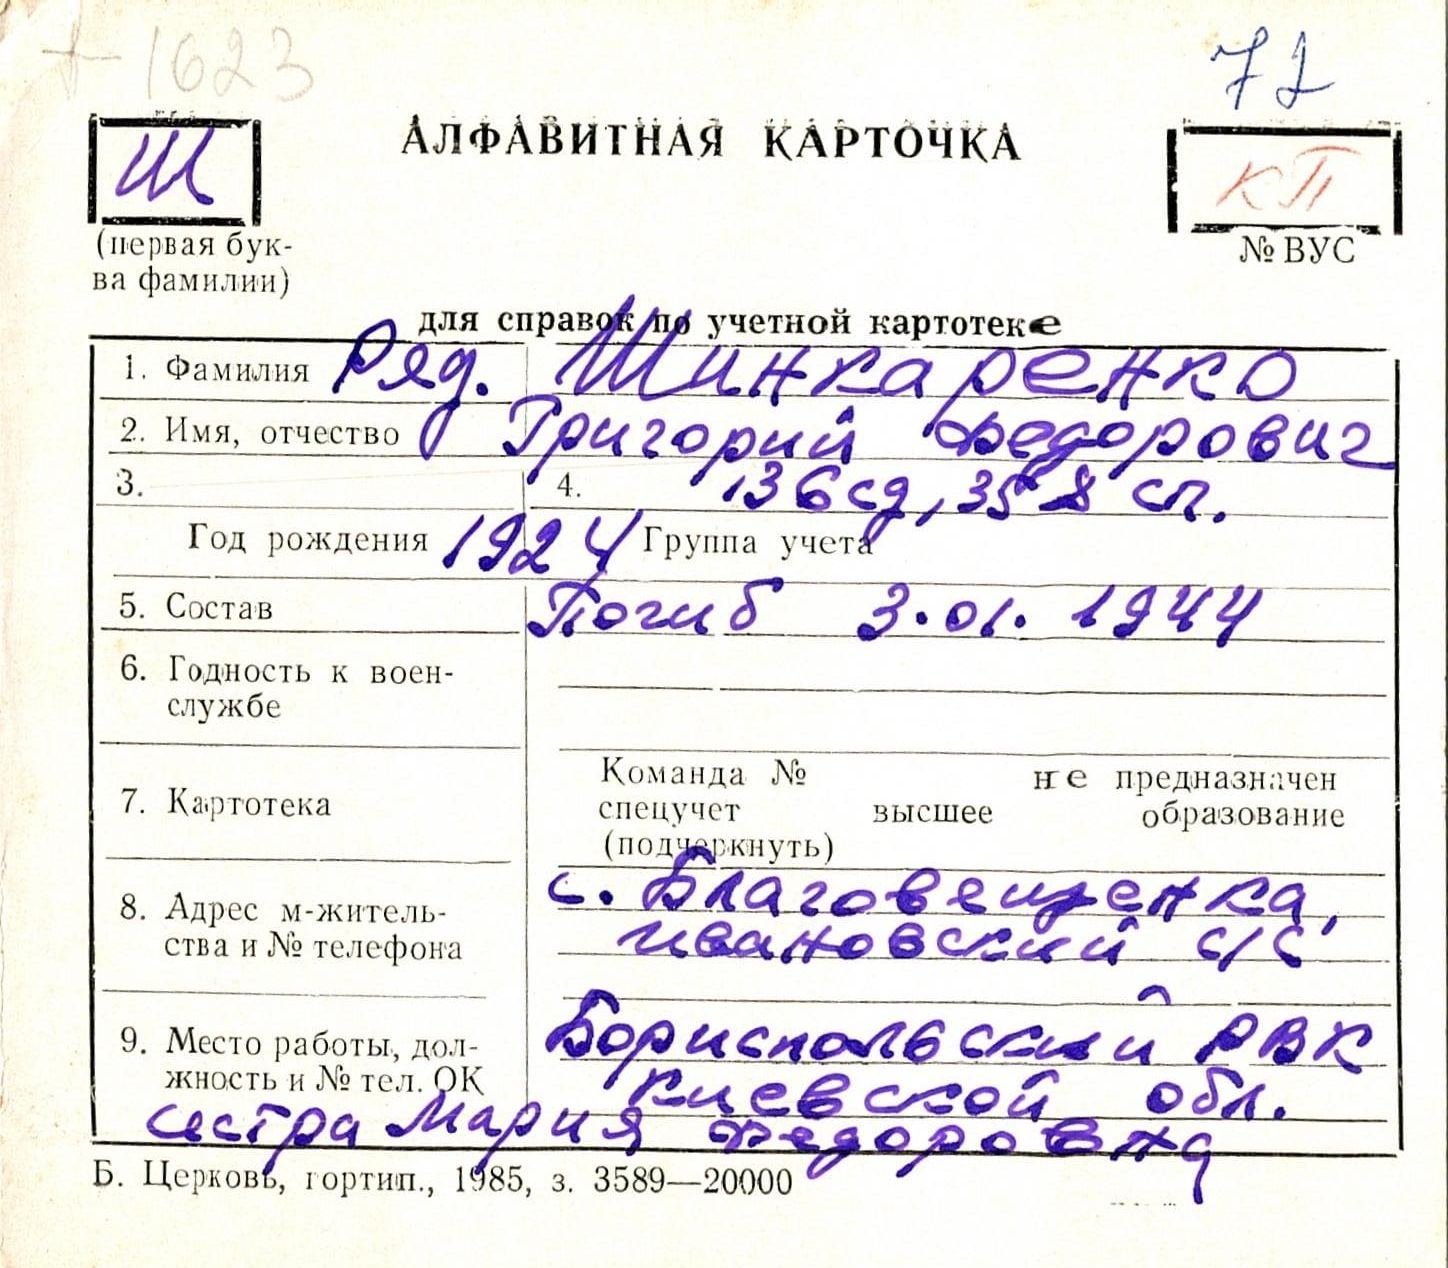 + 1623
72
Ш
АЛФАВИТНАЯ КАРТОЧКА
КП
(первая бук-
ва фамилии)
№ ВУС
для справок по учетной картотеке
1. Фамилия Ряд. Шинкаренко
2. Имя, отчество Григорий Федорович
3. 4. 136 сд, 358 сп.
Год рождения 1924 Группа учета
5. Состав Погиб 3.01.1944
6. Годность к воен-
службе
7. Картотека
Команда № не предназначен
спецучет высшее образование
(подчеркнуть)
8. Адрес м-житель-
ства и № телефона
с. Благовещенка,
Ивановский с/с
9. Место работы, дол-
жность и № тел. ОК
Бориспольский РВК
Киевской обл.
сестра Мария Федоровна
Б. Церковь, гортип., 1985, з. 3589—20000